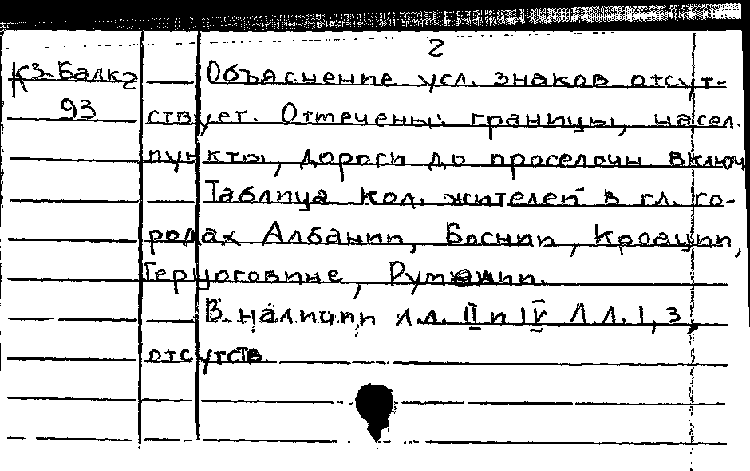 2
К3-Балк2
93
Объяснение усл. знаков отсут-
ствует. Отмечены: границы, насел.
пункты, дороги до проселочн включ
Таблица кол. жителей в гл. го-
родах Албании, Боснии, Кроации,
Герцоговине, Румынии.
В наличии л.л. II и IV Л.л. 1, 3,
отсутств.